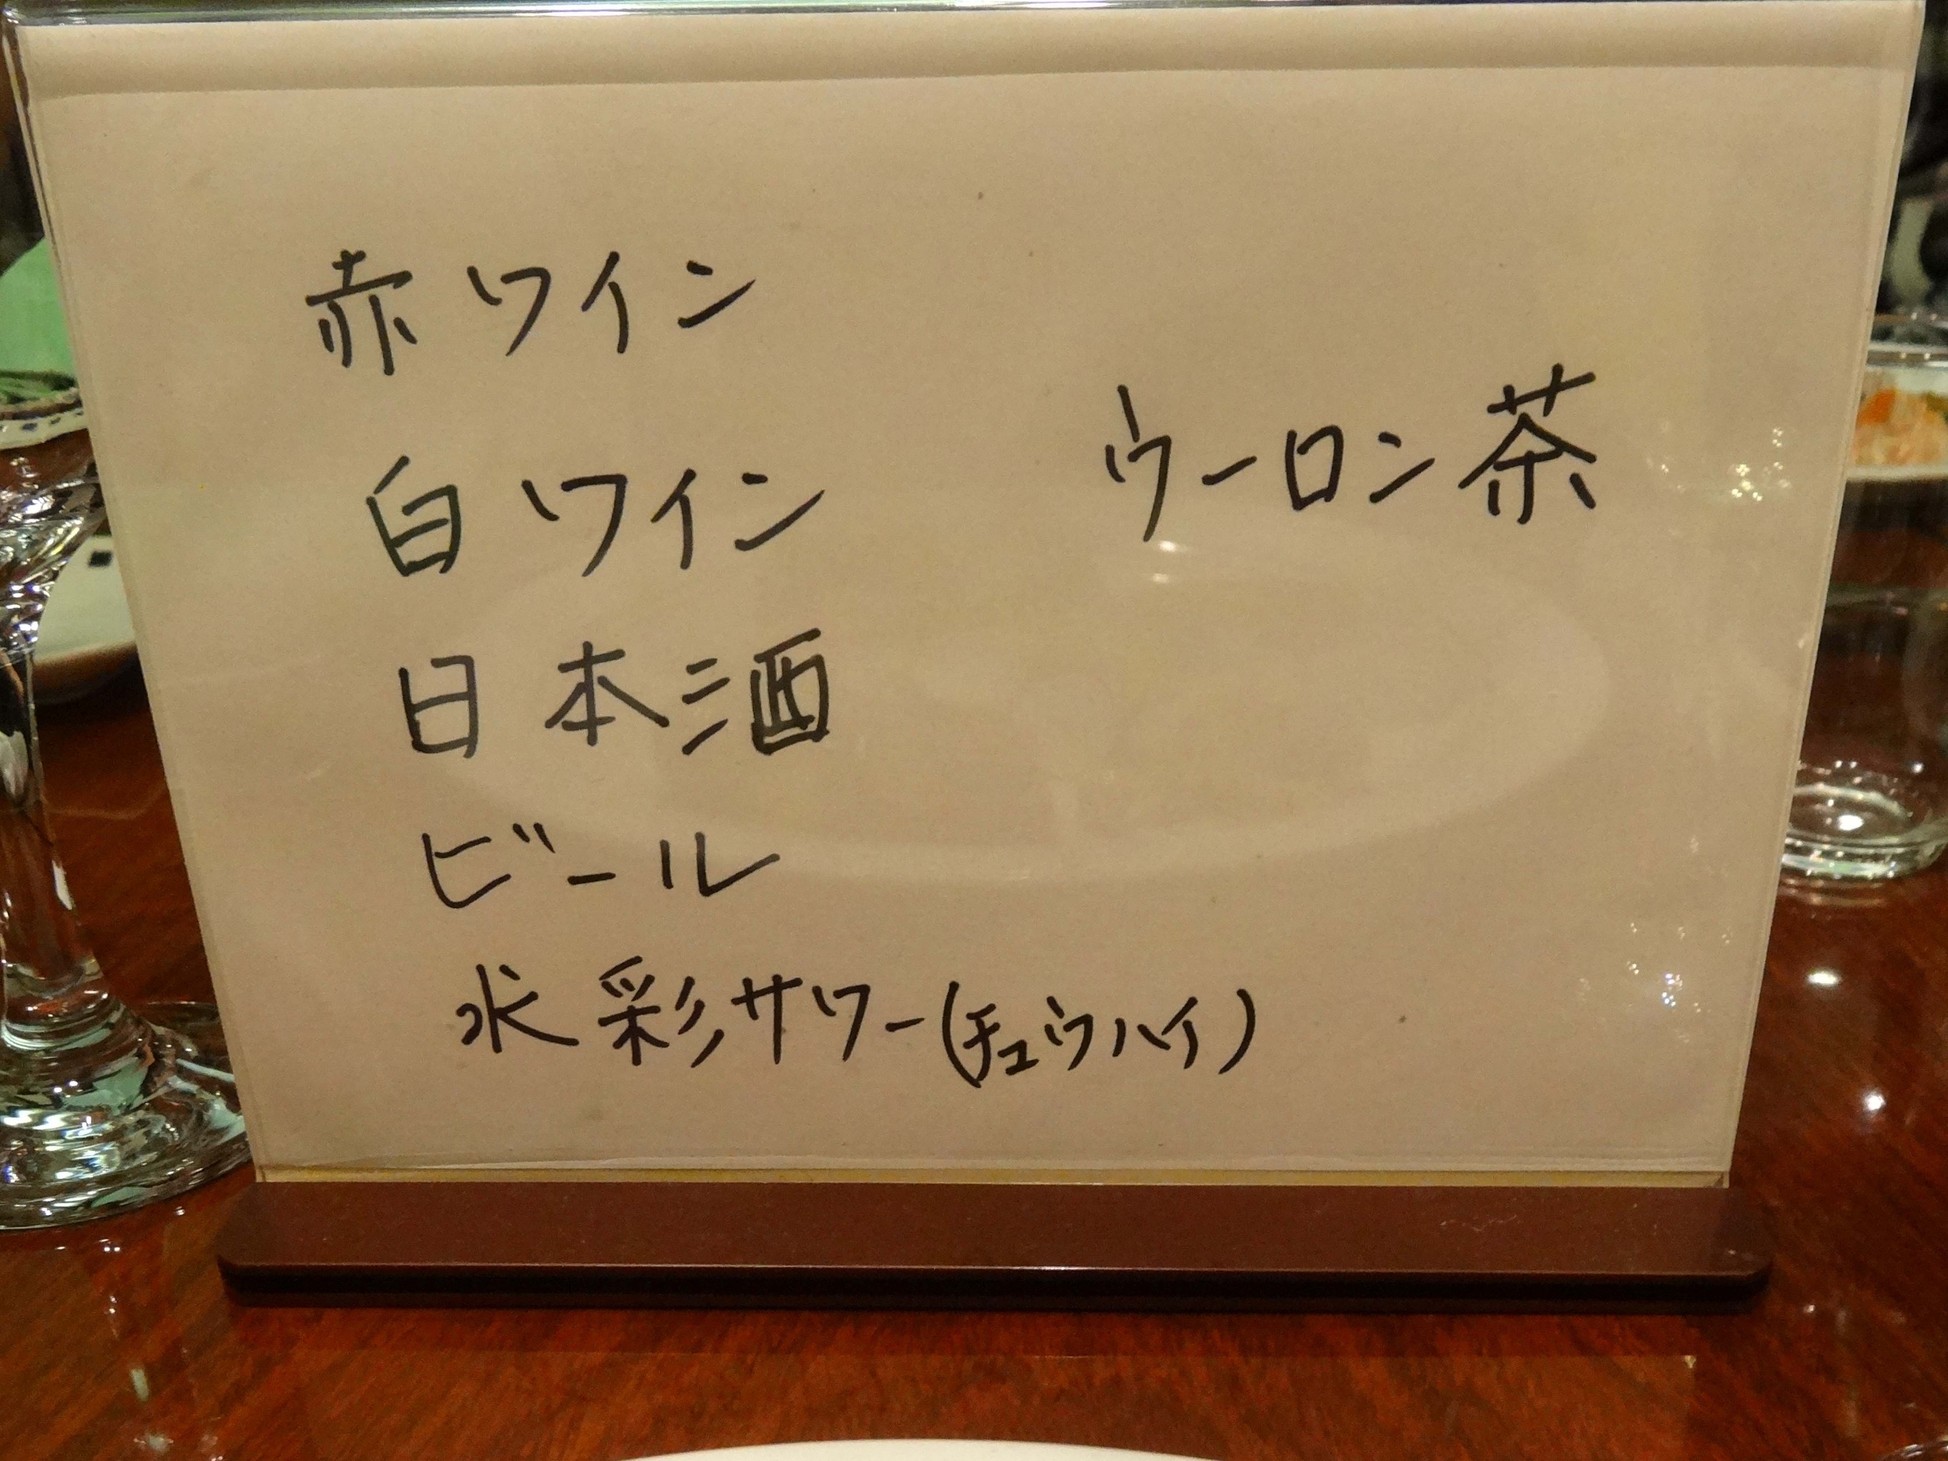 赤ワイン
白ワイン
ウーロン茶
日本酒
ビール
水彩サワー(チュウハイ)